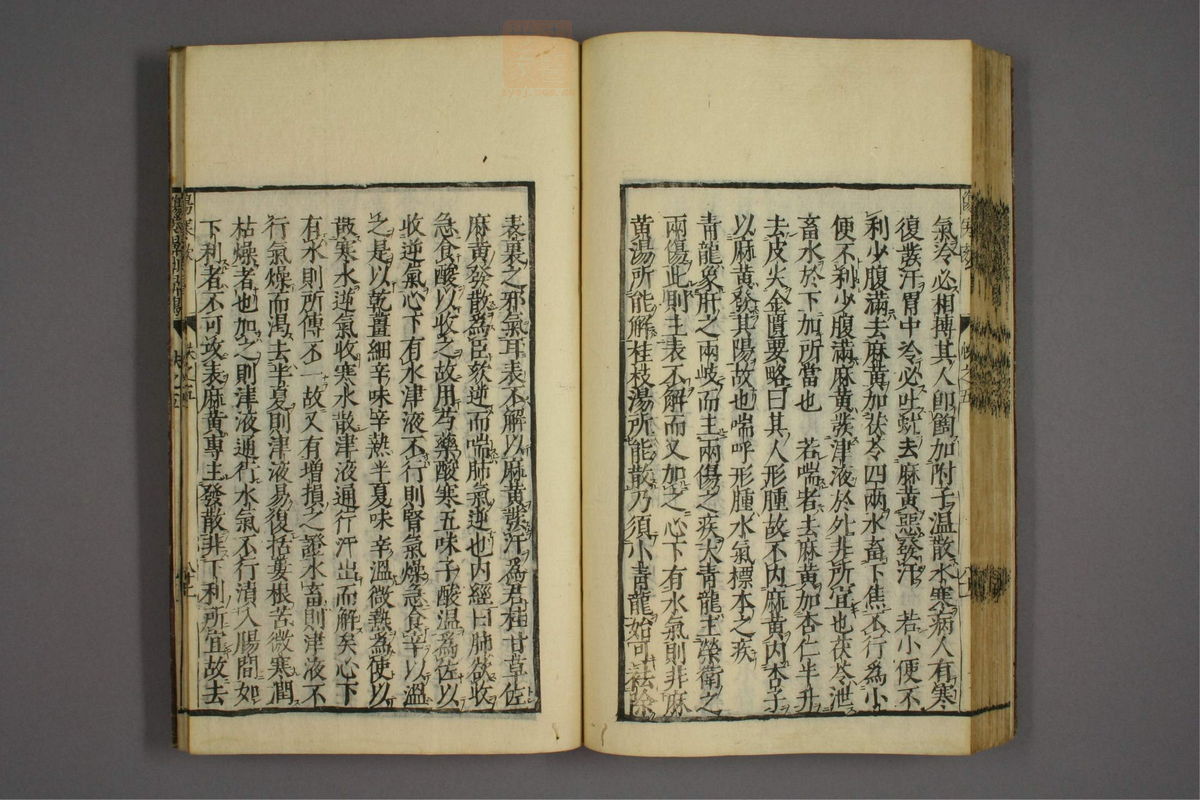 氣冷必相搏其人卽䭇加附子温散水寒病人有寒
復發汗胃中冷必吐蚘去麻黃惡發汗　若小便不
利少腹滿去麻黃加茯苓四兩水畜下焦不行爲小
便不利少腹滿麻黃發津液於外非所宜也茯苓泄
畜水於下加所當也　若喘者去麻黃加杏仁半升
去皮尖金匱要略曰其人形腫故不内麻黃内杏子
以麻黃發其陽故也喘呼形腫水氣標本之疾
青龍象肝之兩岐而主兩傷之疾大青龍主榮衛之
兩傷此則主表不解而又加之心下有水氣則非麻
黃湯所能解桂枝湯所能散乃須小青龍始可祛除
表裏之邪氣耳表不解以麻黃發汗爲君桂甘草佐
麻黃發散爲臣欬逆而喘肺氣逆也内經曰肺欲收
急食酸以收之故用芍藥酸寒五味子酸温爲佐以
收逆氣心下有水津液不行則腎氣燥急食辛以溫
之是以乾薑細辛味辛熱半夏味辛溫微熱爲使以
散寒水逆氣收寒水散津液通行汗出而解矣心下
有水則所傳不一故又有增損之證水畜則津液不
行氣燥而渴去半夏則津液易復栝蔞根苦微寒潤
枯燥者也加之則津液通行水氣不行漬入腸間如
下利者不可攻表麻黃專主發散非下利所宜故去